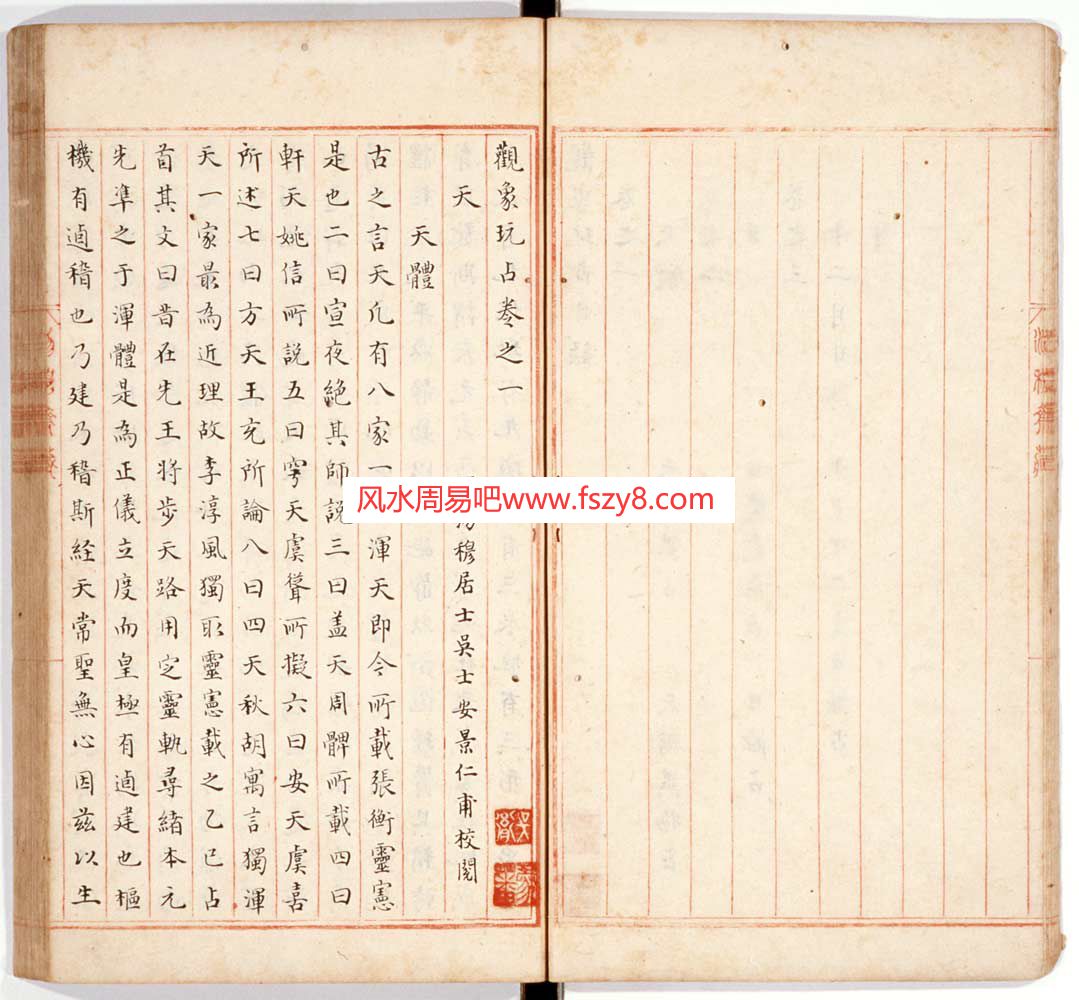 觀象玩占卷之一
天 穆居士吳士安景仁甫校閱
天體
古之言天凡有八家一渾天即今所載張衡靈憲
是也二曰宣夜絕其師說三曰盖天周髀所載四曰
軒天姚信所說五曰穹天虞聳所擬六曰安天虞喜
所述七曰方天王充所論八曰四天秋胡寓言獨渾
天一家最為近理故李淳風獨取靈憲載之乙巳占
首其文曰昔在先王將步天路用定靈軌尋緒本元
先準之于渾體是為正儀立度而皇極有逌建也樞
機有逌稽也乃建乃稽斯経天常聖無心因茲以生
风水周易吧www.fszy8.com